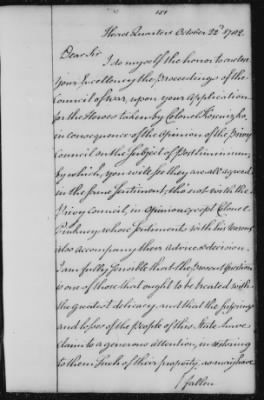 181
Head Quarters October 22d 1782.
Dear Sir
I do myself the honor to enclose
Your Excellency the Proceedings of the
Council of War, upon your Application
for the Horses taken by Colonel Koscuizko,
in consequence of the Opinion of the Privy
Council on the Subject of Postliminium,
by which, you will see they are all agreed
in the same Sentiment; tho' not with the
Privy Council, in Opinion except Colonel
Pinkney, whose Sentiments with his reasons
also accompany their advice & decision.
I am fully sensible that the Present Question
is one of those that ought to be treated with
the greatest delicacy, and that the sufferings
and losses of the People of this State have
claim to a generous attention, in restoring
to them such of their property, as may have
fallen